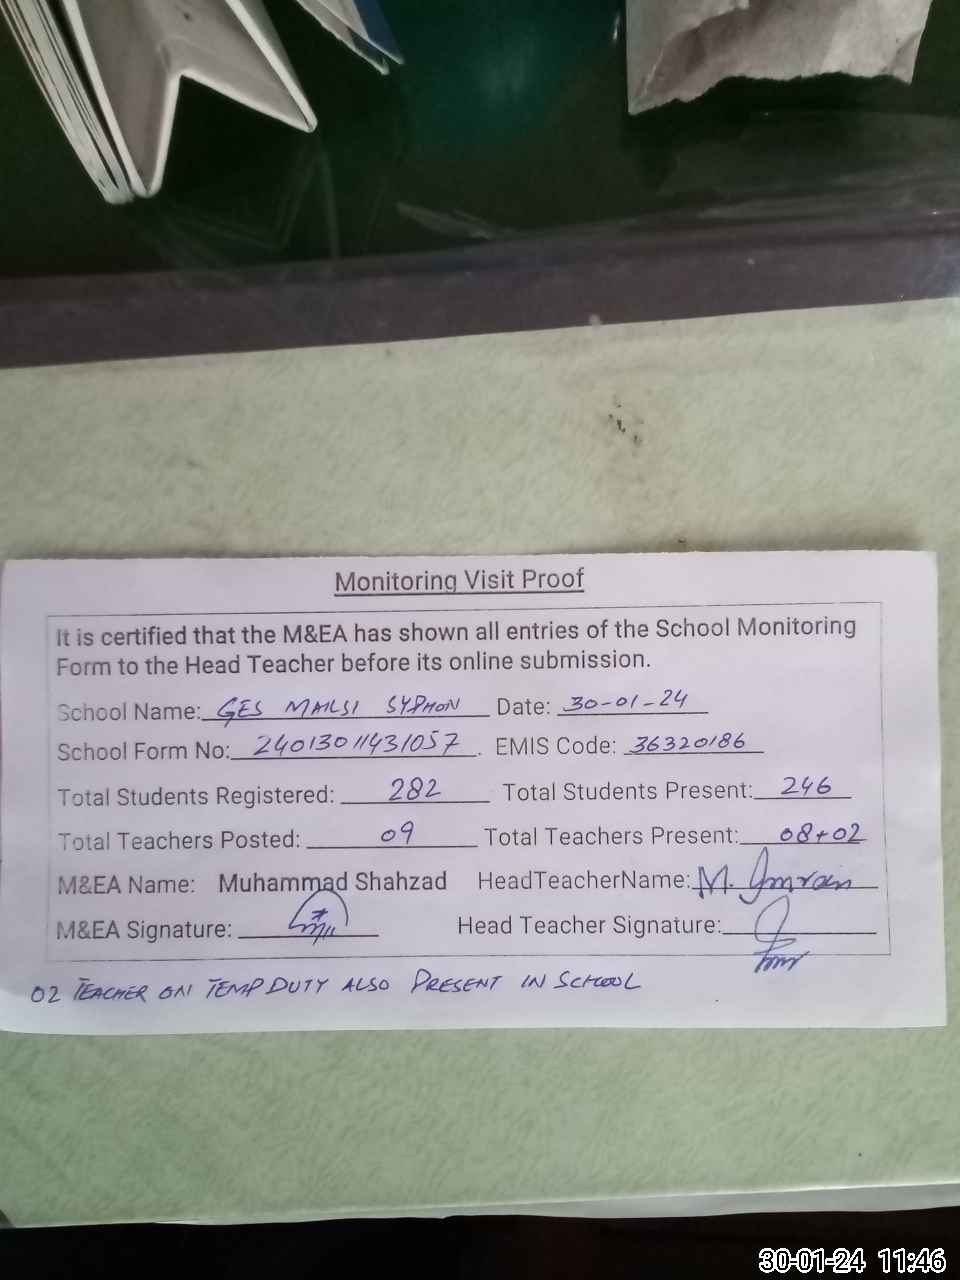 Monitoring Visit Proof
It is certified that the M&EA has shown all entries of the School Monitoring
Form to the Head Teacher before its online submission.
School Name: GES MAILSI SYPHON Date: 30-01-24
School Form No: 24013011431057. EMIS Code: 36320186
Total Students Registered: 282 Total Students Present: 246
Total Teachers Posted: 09 Total Teachers Present: 08+02
M&EA Name: Muhammad Shahzad HeadTeacherName: M. Imran
M&EA Signature: Head Teacher Signature:
02 TEACHER ON TEMP DUTY ALSO PRESENT IN SCHOOL
30-01-24 11:46